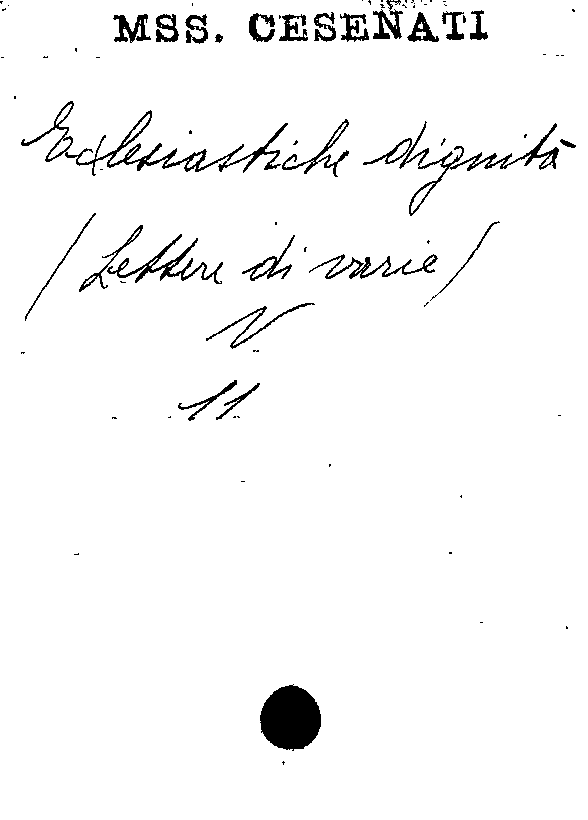 MSS. CESENATI
Ecclesiastiche dignità
(Lettere di varie)
V
11